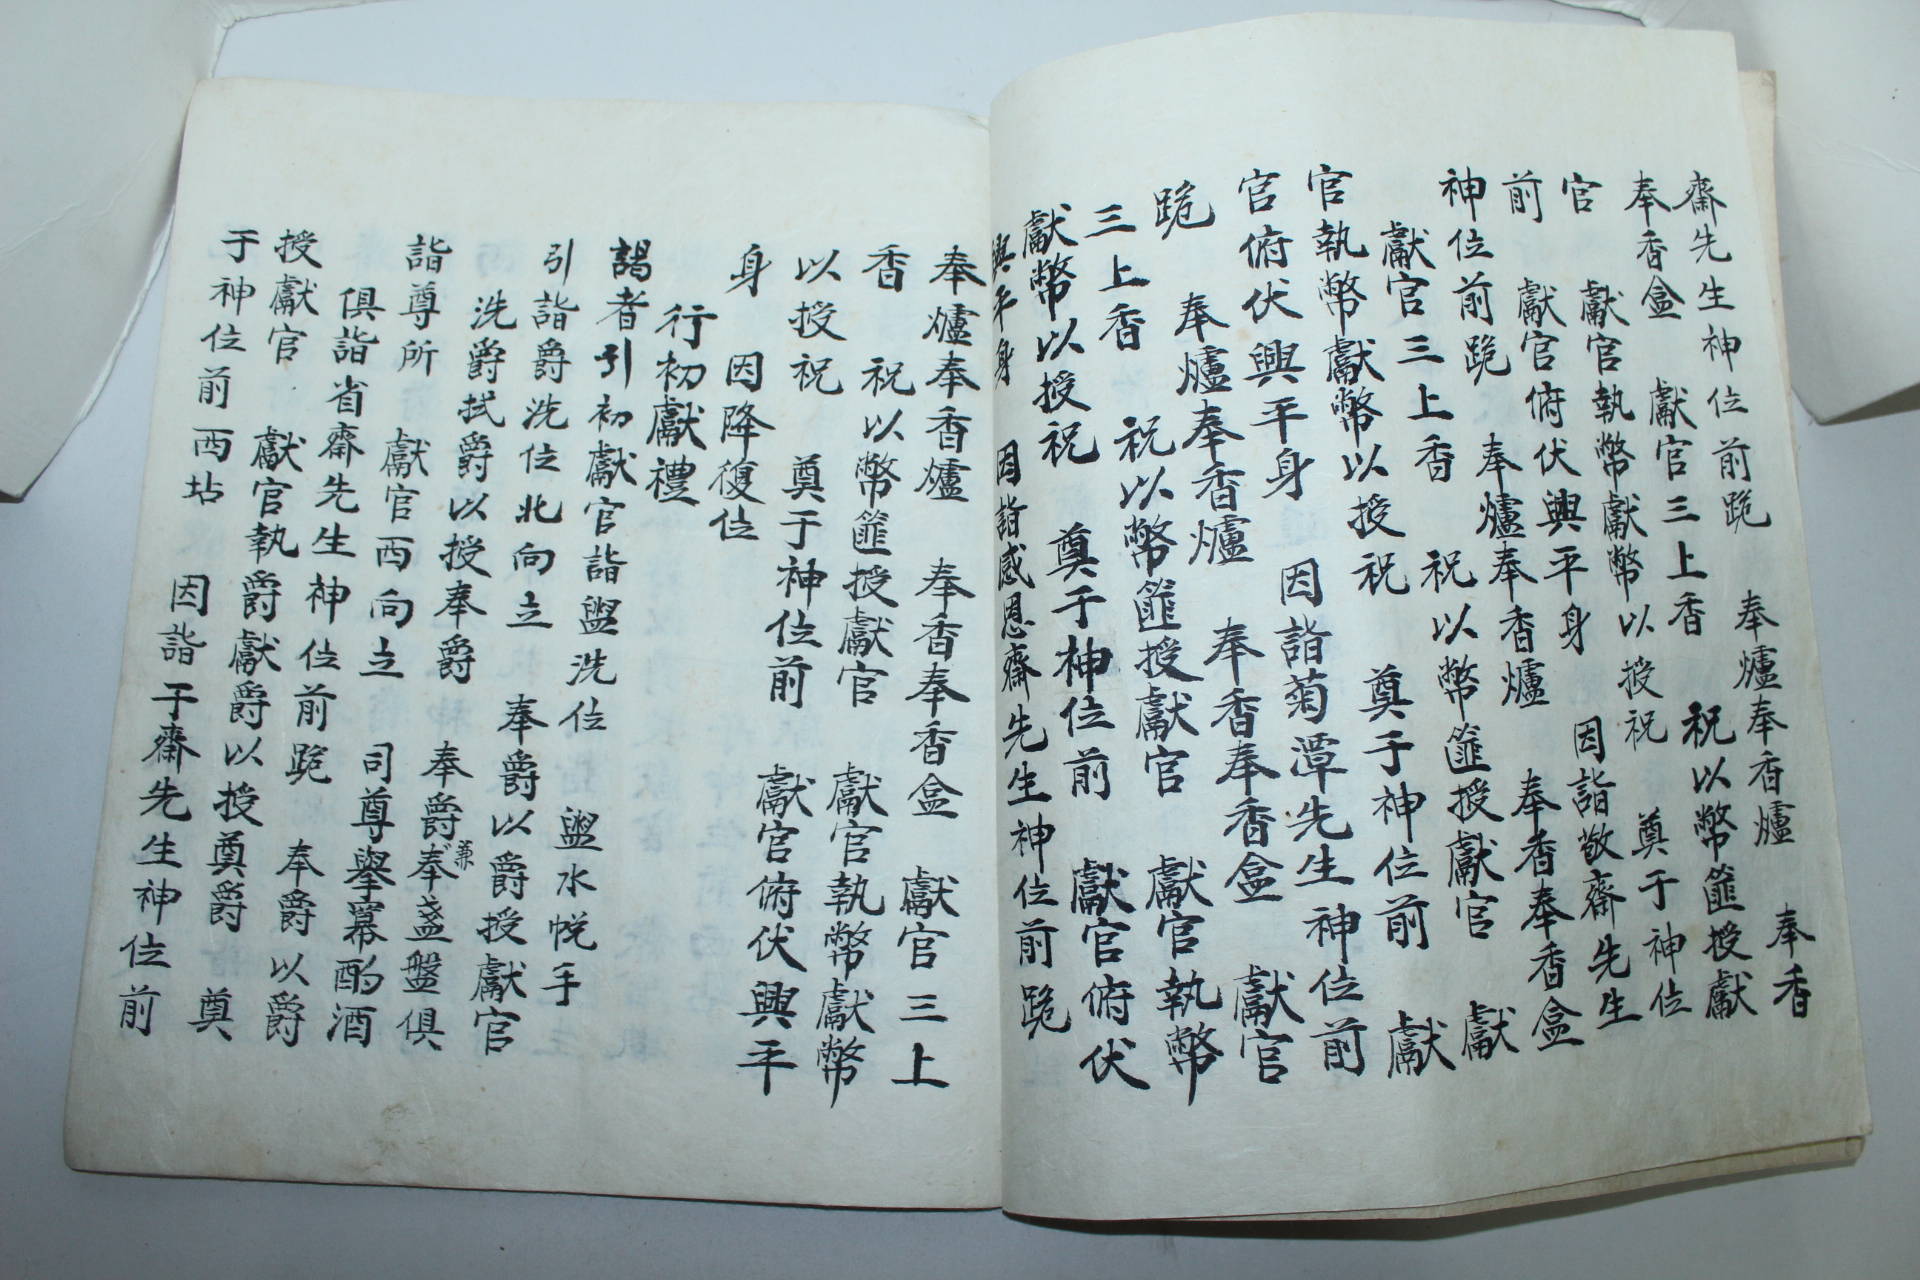 齋先生神位前跪 奉爐奉香爐 奉香
奉香盒 獻官三上香 祝以幣篚授獻
官 獻官執幣獻幣以授祝 奠于神位
前 獻官俯伏興平身 因詣敬齋先生
神位前跪 奉爐奉香爐 奉香奉香盒
獻官三上香 祝以幣篚授獻官 獻
官執幣獻幣以授祝 奠于神位前 獻
官俯伏興平身 因詣菊潭先生神位前
跪 奉爐奉香爐 奉香奉香盒 獻官
三上香 祝以幣篚授獻官 獻官執幣
獻幣以授祝 奠于神位前 獻官俯伏
興平身 因詣感恩齋先生神位前跪
奉爐奉香爐 奉香奉香盒 獻官三上
香 祝以幣篚授獻官 獻官執幣獻幣
以授祝 奠于神位前 獻官俯伏興平
身 因降復位
行初獻禮
謁者引初獻官詣盥洗位 盥水帨手
引詣爵洗位北向立 奉爵以爵授獻官
洗爵拭爵以授奉爵 奉爵兼奉盞盤俱
詣尊所 獻官西向立 司尊擧冪酌酒
俱詣省齋先生神位前跪 奉爵以爵
授獻官 獻官執爵獻爵以授奠爵 奠
于神位前西坫 因詣于齋先生神位前